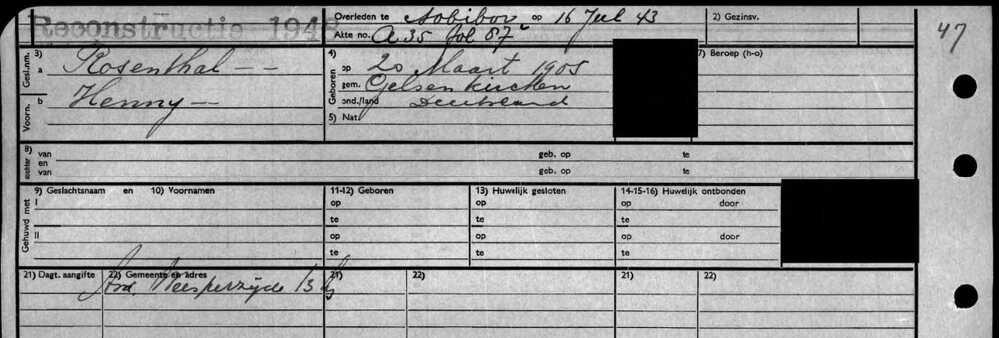 Reconstructie 194
Overleden te Sobibor op 16 Jul 43
2) Gezinsv.
Akte no. A 35 fol 87
47
Gesl.nm.
3)
a Rosenthal - -
Voorn.
b Henny -
Geboren
4)
op 20 Maart 1905
gem. Gelsenkirchen
ond./land Deutsland
5) Nat.
7) Beroep (h-o)
8) van
en
van
echter
geb. op te
geb. op te
9) Geslachtsnaam en 10) Voornamen
11-12) Geboren
13) Huwelijk gesloten
14-15-16) Huwelijk ontbonden
Gehuwd met
I
II
op op op door
te te te
op op op door
te te te
21) Dagt. aangifte
22) Gemeente en adres
21)
22)
21)
22)
Asd. Weesperzijde 13